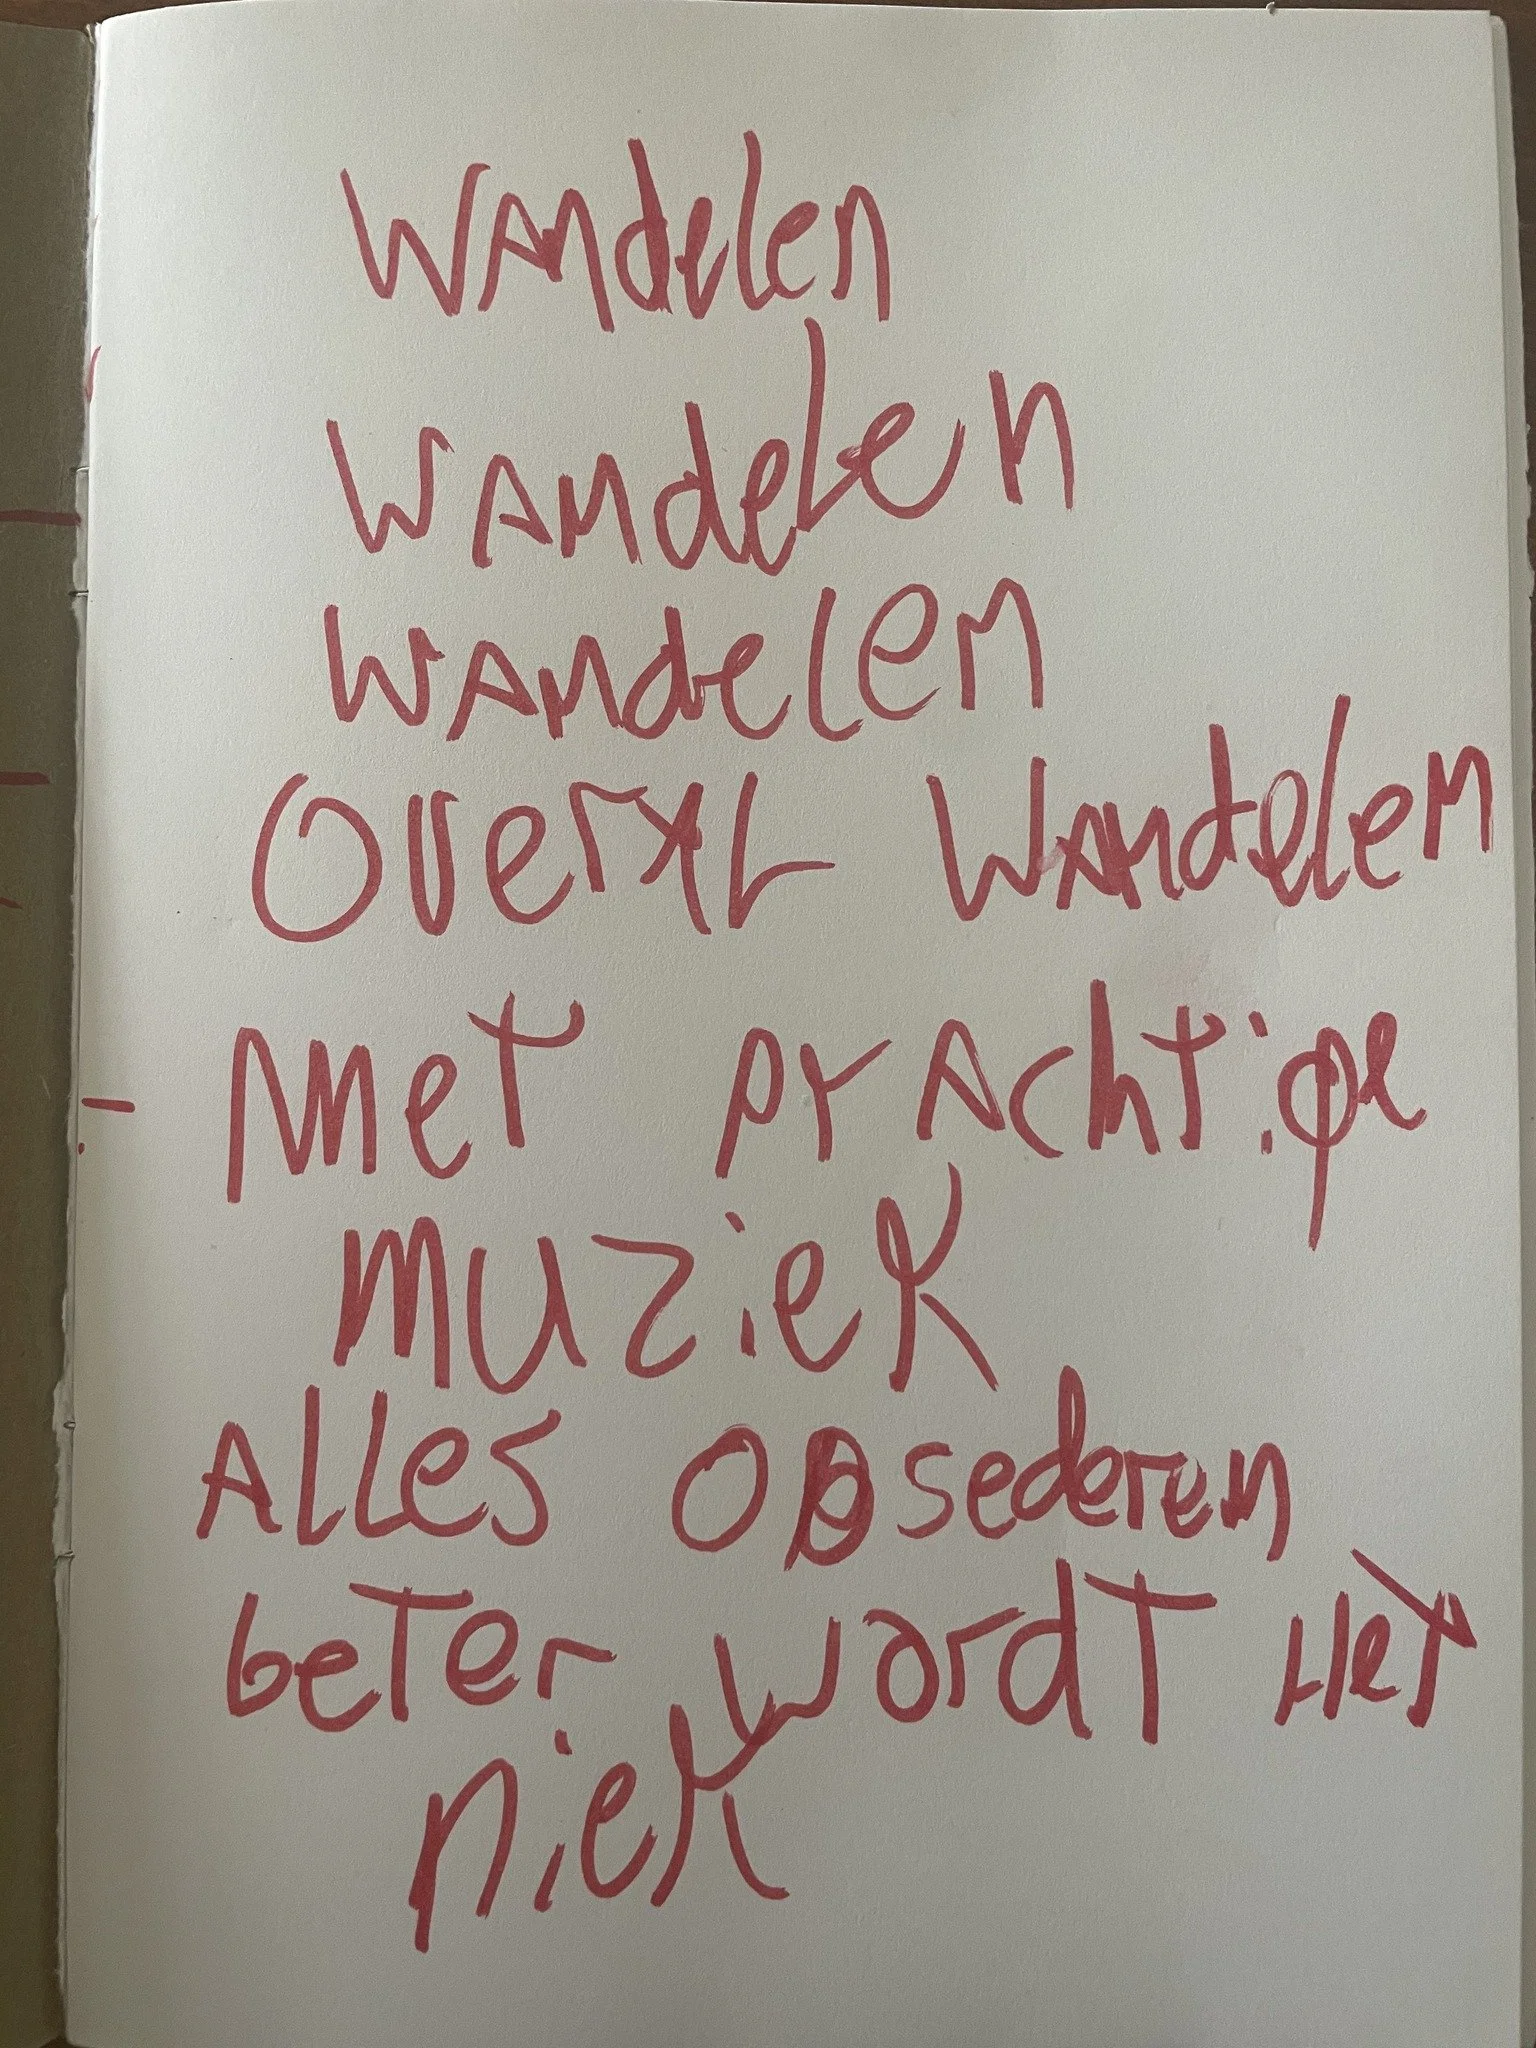 wandelen
wandelen
wandelen
overal wandelen
met prachtige
muziek
Alles obsederen
beter wordt het
niek